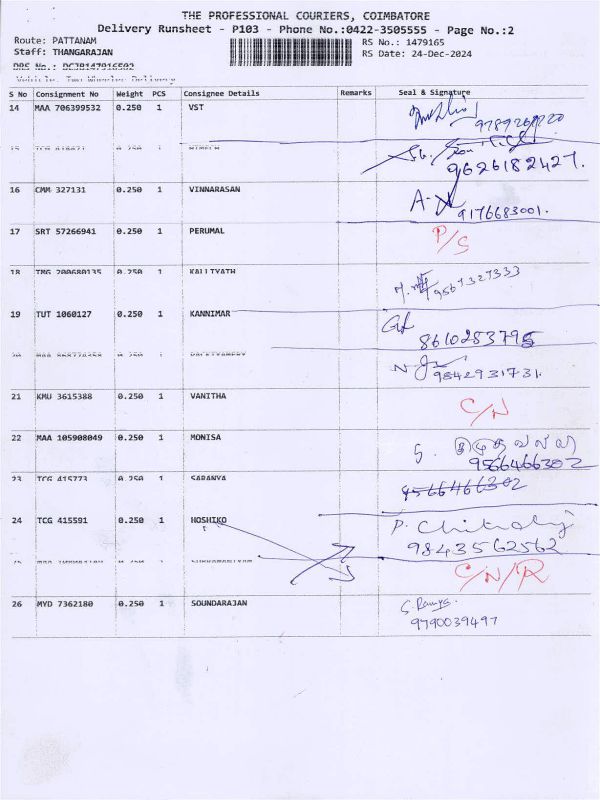 THE PROFESSIONAL COURIERS, COIMBATORE
Delivery Runsheet - P103 - Phone No.:0422-3505555 - Page No.:2
Route: PATTANAM
RS No.: 1479165
Staff: THANGARAJAN
RS Date: 24-Dec-2024
S No Consignment No Weight PCS Consignee Details Remarks Seal & Signature
14 MAA 706399532 0.250 1 VST
9626182427.
16 CMM 327131 0.250 1 VINNARASAN
A-
9176683001.
17 SRT 57266941 0.250 1 PERUMAL P/S
18 TMG 200680135 0.250 1 KALLIYATH 9567327333
19 TUT 1060127 0.250 1 KANNIMAR
8610283795
N 9842931731.
21 KMU 3615388 0.250 1 VANITHA C/N
22 MAA 105908049 0.250 1 MONISA
9566466302
23 TCG 415773 0.250 1 SARANYA 9566466302
24 TCG 415591 0.250 1 HOSHIKO
9843562562
C/N/R
26 MYD 7362180 0.250 1 SOUNDARAJAN S. Ramya.
9790039497